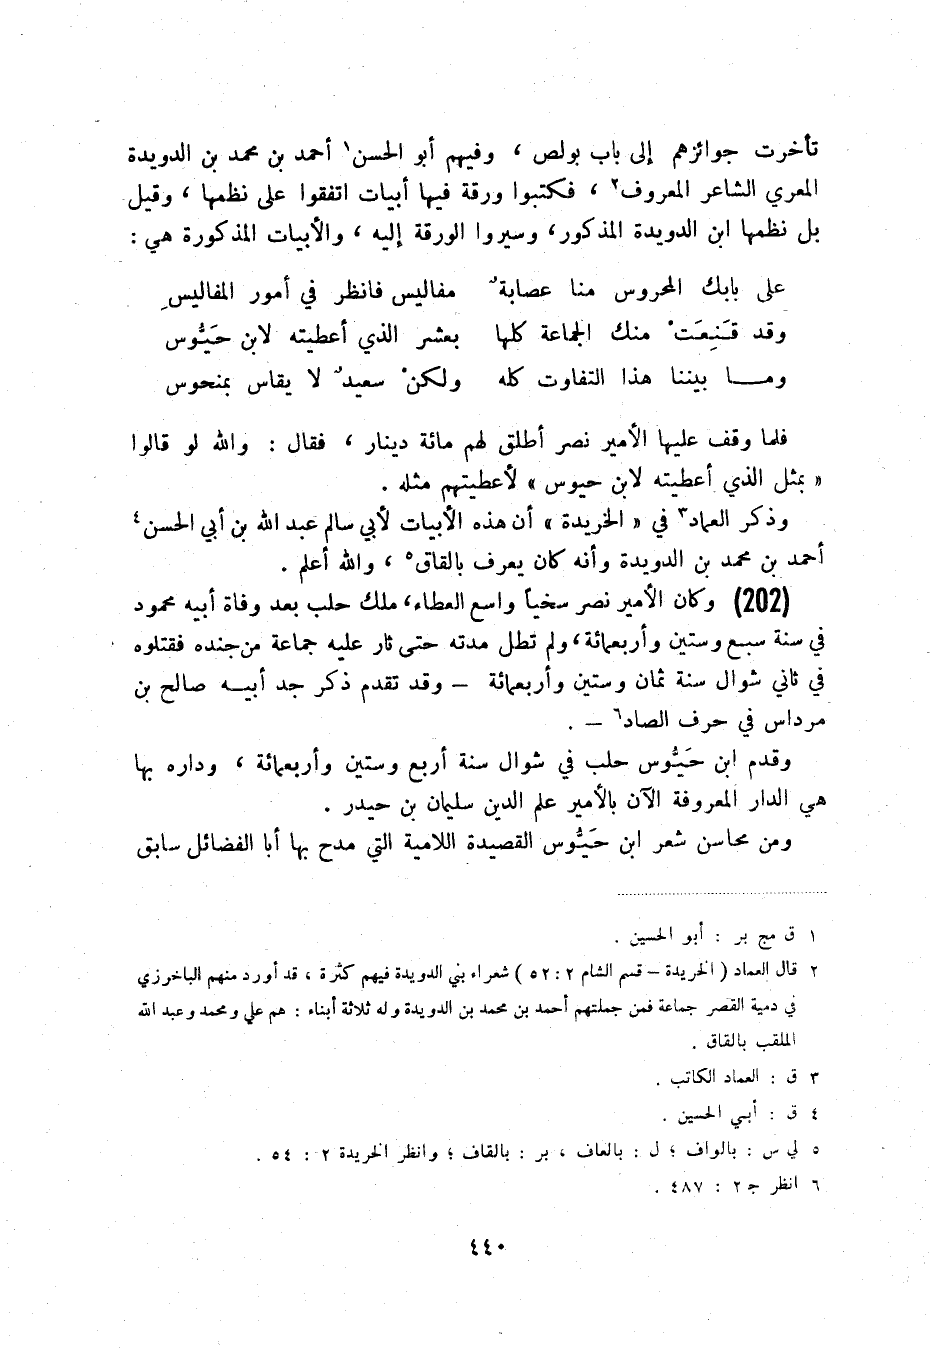 تأخرت جوائزهم إلى باب بولص ، وفيهم أبو الحسن١ أحمد بن محمد بن الدويدة
المعري الشاعر المعروف٢ ، فكتبوا ورقة فيها أبيات اتفقوا على نظمها ، وقيل
بل نظمها ابن الدويدة المذكور، وسيروا الورقة إليه ، والأبيات المذكورة هي :
على بابك المحروس منا عصابةٌ مفاليس فانظر في أمور المفاليسِ
وقد قَنِعَتْ منك الجماعة كلها بعشر الذي أعطيته لابن حَيُّوس
ومـــا بيننا هذا التفاوت كله ولكنْ سعيدٌ لا يقاس بمنحوس
فلما وقف عليها الأمير نصر أطلق لهم مائة دينار ، فقال : والله لو قالوا
« بمثل الذي أعطيته لابن حيوس » لأعطيتهم مثله .
وذكر العماد٣ في « الخريدة » أن هذه الأبيات لأبي سالم عبد الله بن أبي الحسن٤
أحمد بن محمد بن الدويدة وأنه كان يعرف بالقاق٥ ، والله أعلم .
(202) وكان الأمير نصر سخياً واسع العطاء، ملك حلب بعد وفاة أبيه محمود
في سنة سبع وستين وأربعمائة، ولم تطل مدته حتى ثار عليه جماعة من جنده فقتلوه
في ثاني شوال سنة ثمان وستين وأربعمائة – وقد تقدم ذكر جد أبيـه صالح بن
مرداس في حرف الصاد٦ – .
وقدم ابن حَيُّوس حلب في شوال سنة أربع وستين وأربعمائة ، وداره بها
هي الدار المعروفة الآن بالأمير علم الدين سليمان بن حيدر .
ومن محاسن شعر ابن حَيُّوس القصيدة اللامية التي مدح بها أبا الفضائل سابق
١ ق مج بر : أبو الحسين .
٢ قال العماد ( الخريدة – قسم الشام ٢ : ٥٢ ) شعراء بني الدويدة فيهم كثرة ، قد أورد منهم الباخرزي
في دمية القصر جماعة فمن جملتهم أحمد بن محمد بن الدويدة وله ثلاثة أبناء : هم علي ومحمد وعبد الله
الملقب بالقاق .
٣ ق : العماد الكاتب .
٤ ق : أبي الحسين .
٥ لي س : بالواف ؛ ل : بالعاف ، بر : بالقاف ؛ وانظر الخريدة ٢ : ٥٤ .
٦ انظر ج ٢ : ٤٨٧ .
٤٤٠